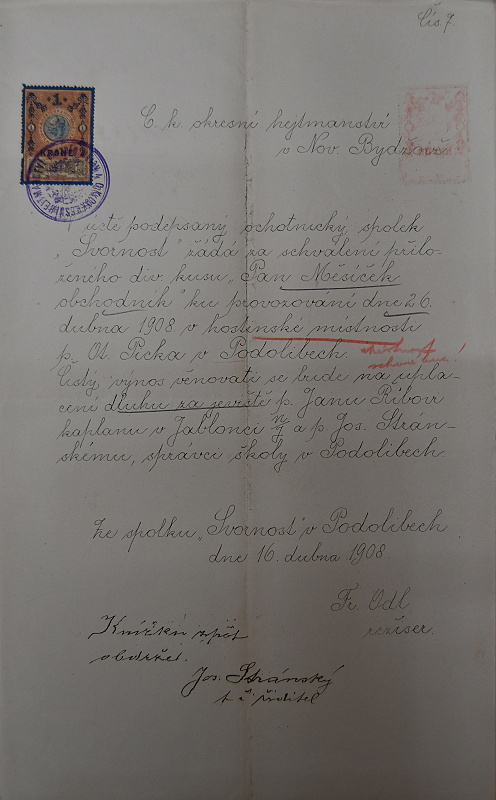 Čís. 7.
C. k. okresní hejtmanství
v Nov. Bydžově
1
uctě podepsaný ochotnický spolek
„Svornost" žádá za schválení přilo-
ženého div. kusu „Pan Měsíček
obchodník" ku provozování dne 26.
dubna 1908 v hostinské místnosti
p. Ot. Picka v Podolibech.
Čistý výnos věnovati se bude na upla-
cení dluhu za jeviště p. Janu Ribov
kaplanu v Jablonci n/J a p. Jos. Strán-
skému, správci školy v Podolibech.
Ze spolku „Svornost" v Podolibech
dne 16. dubna 1908.
Fr. Odl
režiser.
Knížku zpět
obdržel.
Jos. Stránský
t. č. ředitel